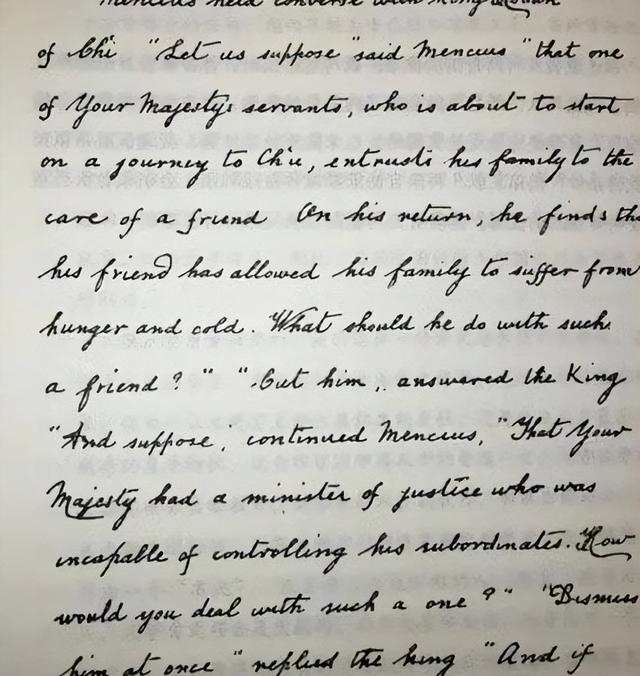 Mencius held converse with King
of Chi "Let us suppose" said Mencius "that one
of Your Majestys servants, who is about to start
on a journey to Ch'u, entrusts his family to the
care of a friend On his return, he finds tha
his friend has allowed his family to suffer from
hunger and cold. What should he do with such
a friend?" "Cut him, answered the King
"And suppose, continued Mencius, "That Your
Majesty had a minister of justice who was
incapable of controlling his subordinates. How
would you deal with such a one?" "Dismiss
him at once" replied the king "And if